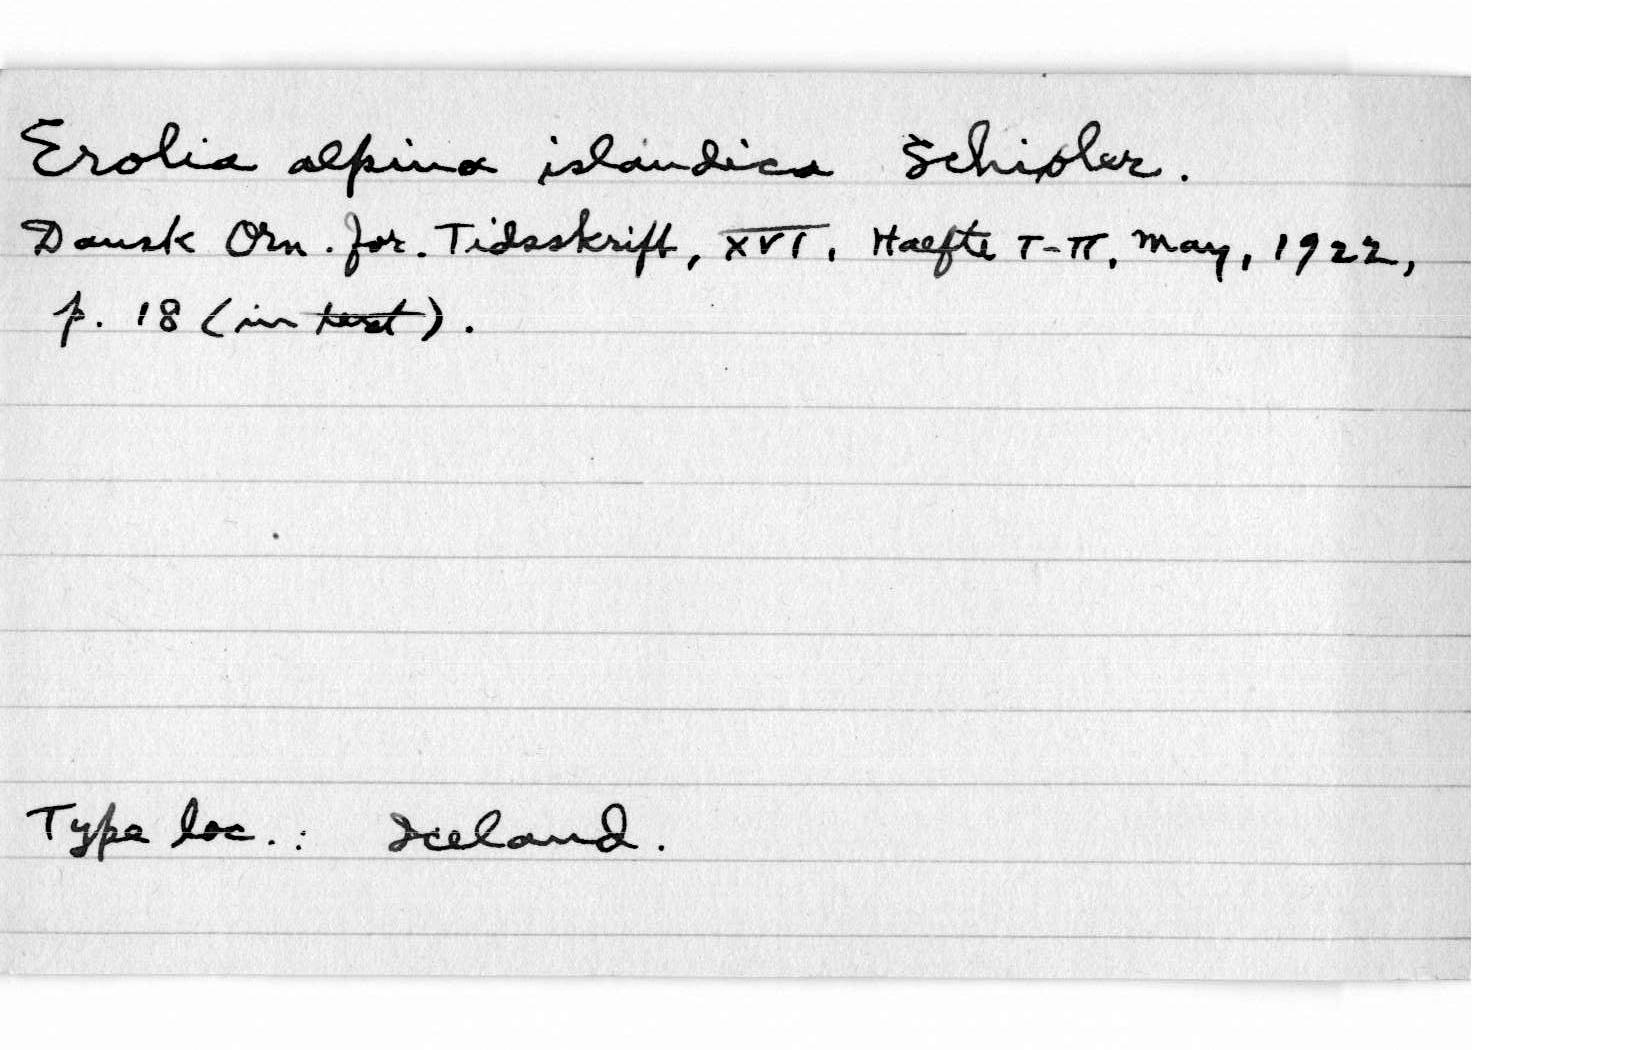 Erolia alpina islandica Schiøler.
Dansk Orn. for. Tidsskrift, XVI, Haefte I-II, May, 1922,
p. 18 (in text).
Type loc.: Iceland.